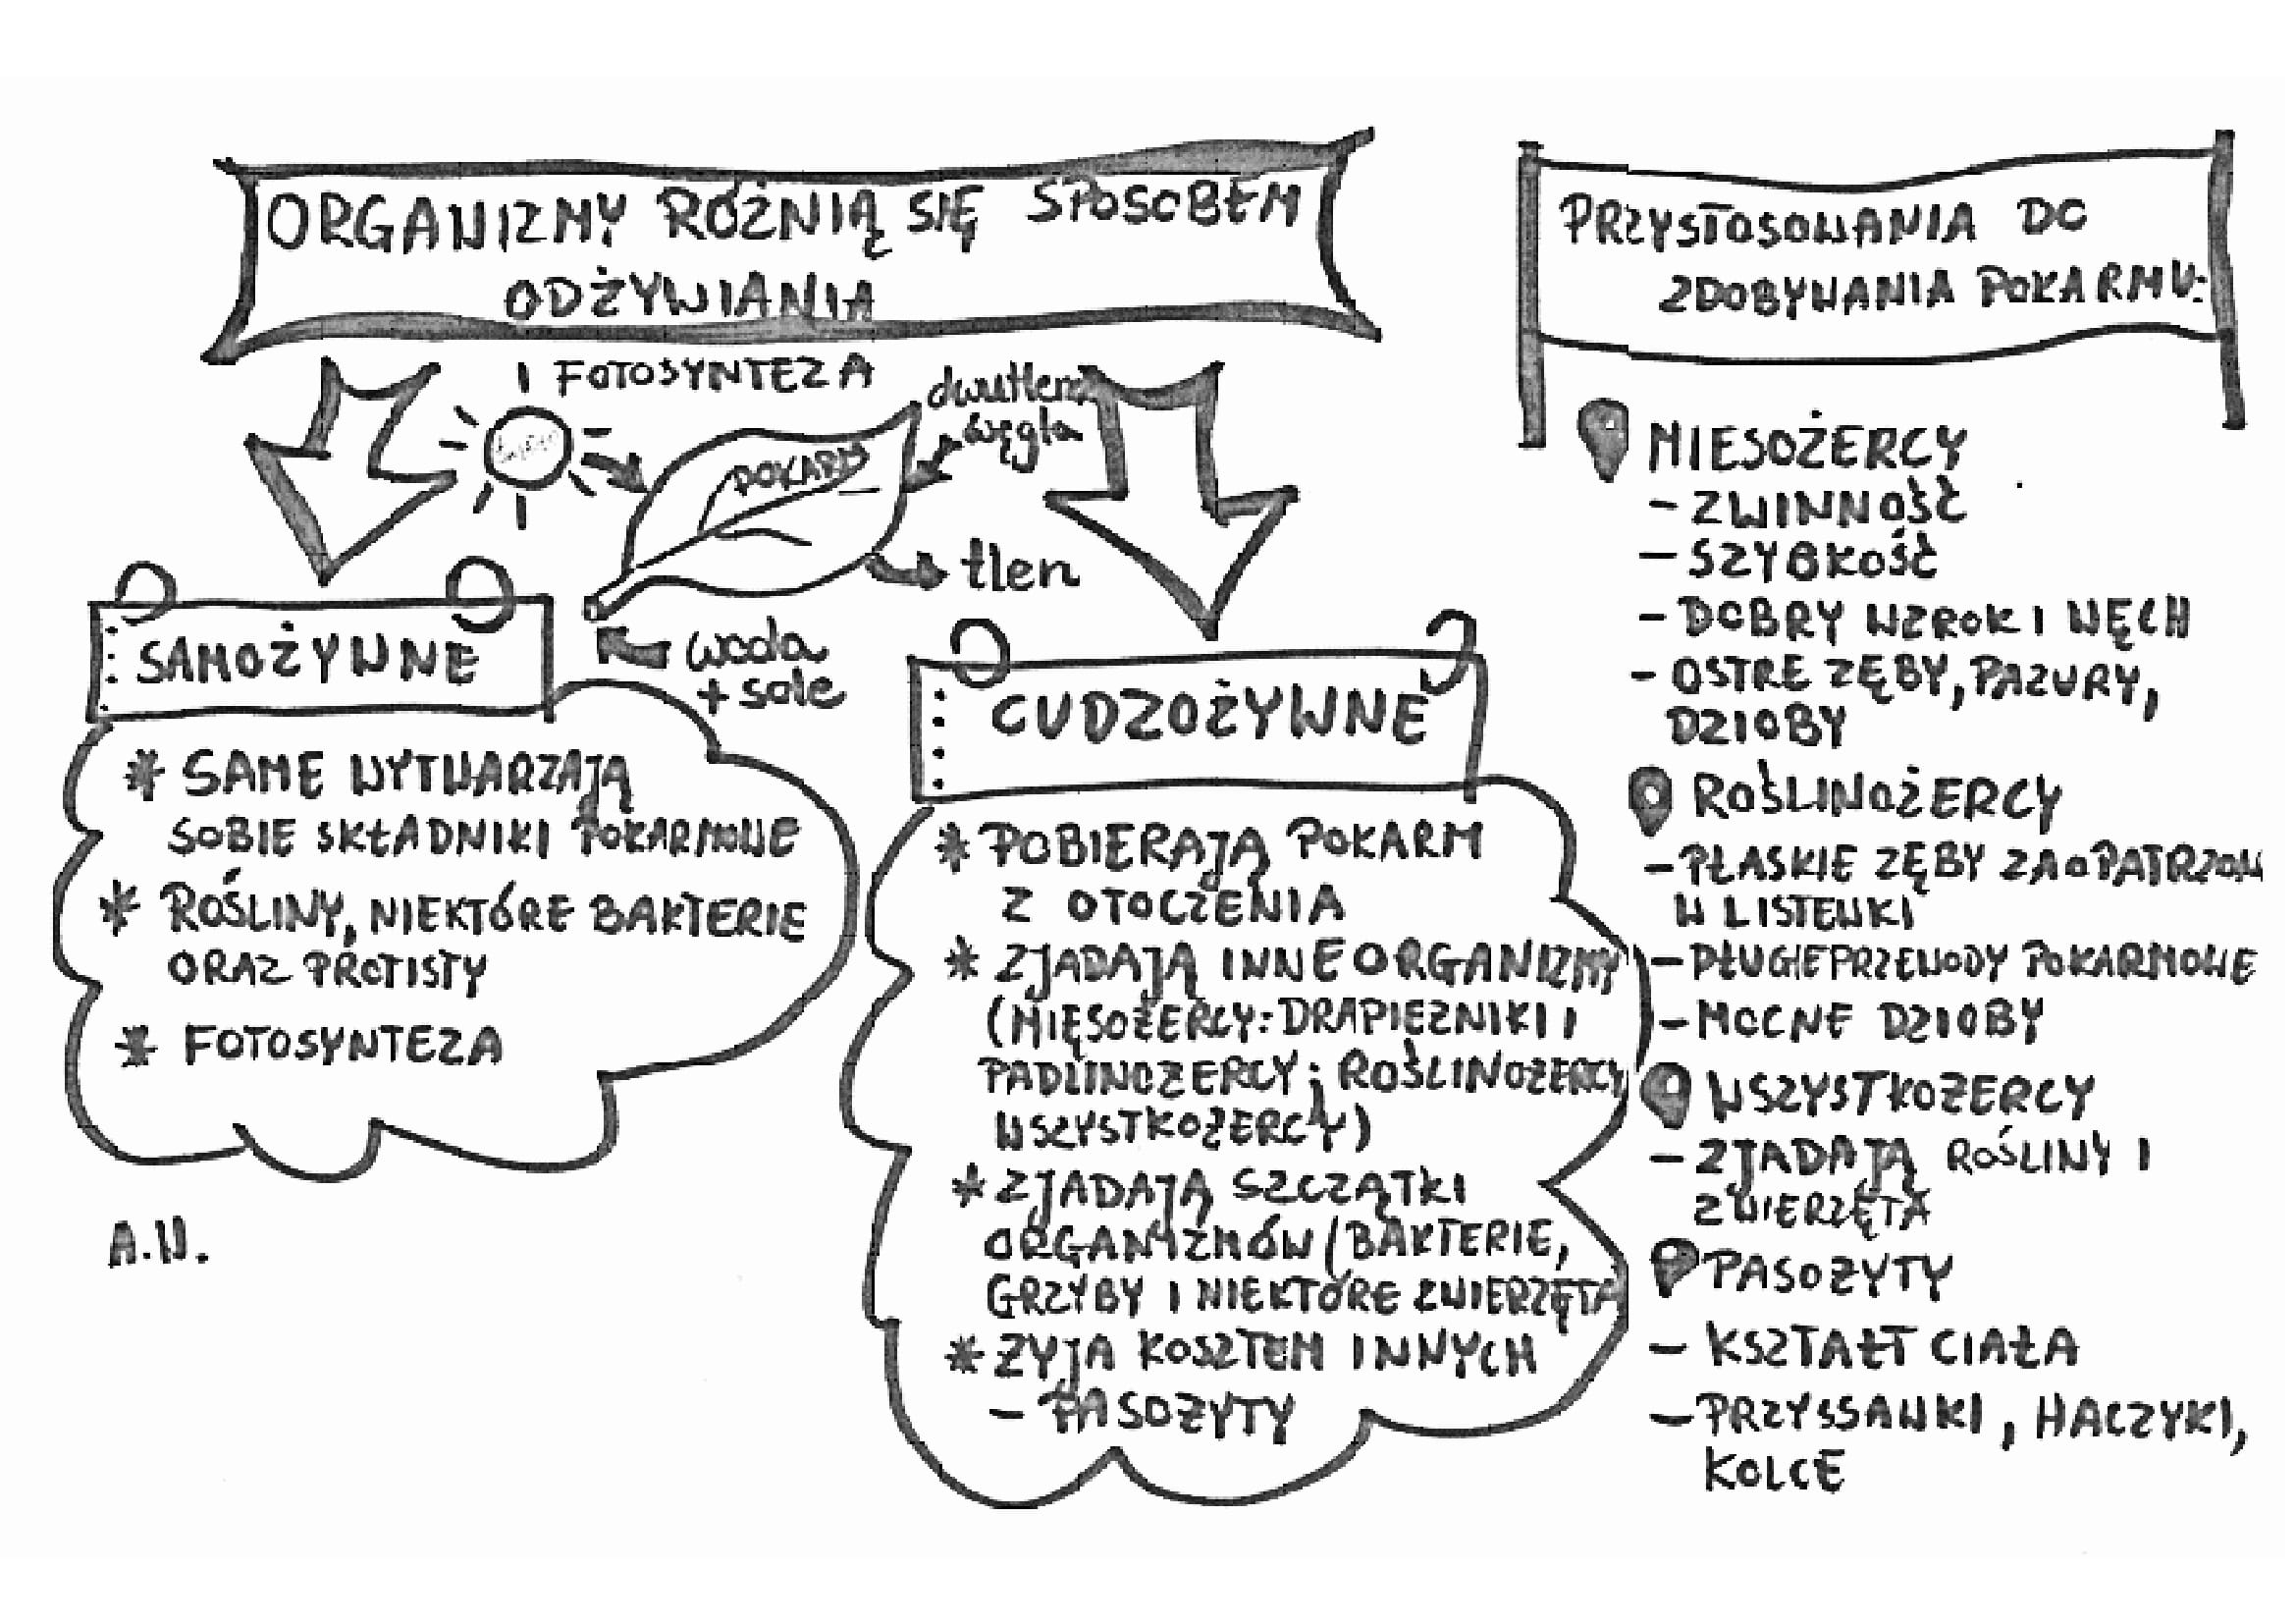 ORGANIZMY RÓŻNIĄ SIĘ SPOSOBEM
ODŻYWIANIA
FOTOSYNTEZA
dwutlenek
węgla
POKARM
tlen
woda
+ sole
SAMOŻYWNE
* SAME WYTWARZAJĄ
SOBIE SKŁADNIKI POKARMOWE
* ROŚLINY, NIEKTÓRE BAKTERIE
ORAZ PROTISTY
* FOTOSYNTEZA
A.W.
CUDZOŻYWNE
* POBIERAJĄ POKARM
Z OTOCZENIA
* ZJADAJĄ INNE ORGANIZMY
(MIĘSOŻERCY: DRAPIEŻNIKI I
PADLINOŻERCY; ROŚLINOŻERCY
WSZYSTKOŻERCY)
* ZJADAJĄ SZCZĄTKI
ORGANIZMÓW (BAKTERIE,
GRZYBY I NIEKTÓRE ZWIERZĘTA
* ŻYJĄ KOSZTEM INNYCH
- PASOŻYTY
PRZYSTOSOWANIA DO
ZDOBYWANIA POKARMU:
MIESOŻERCY
- ZWINNOŚĆ
- SZYBKOŚĆ
- DOBRY WZROK I WĘCH
- OSTRE ZĘBY, PAZURY,
DZIOBY
ROŚLINOŻERCY
- PŁASKIE ZĘBY ZAOPATRZON
W LISTEWKI
- DŁUGIE PRZEWODY POKARMOWE
- MOCNE DZIOBY
WSZYSTKOŻERCY
- ZJADAJĄ ROŚLINY I
ZWIERZĘTA
PASOŻYTY
- KSZTAŁT CIAŁA
- PRZYSSAWKI, HACZYKI,
KOLCE